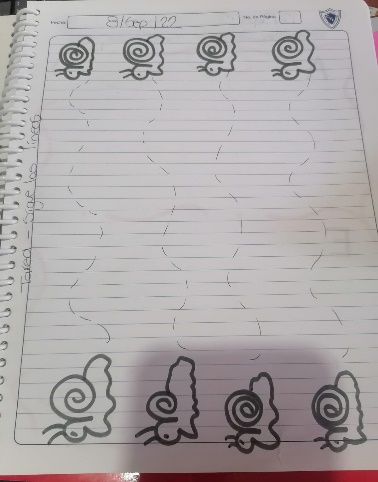 Fecha: 8/Sep/22 No. de Página:
Tarea Sigue las lineas